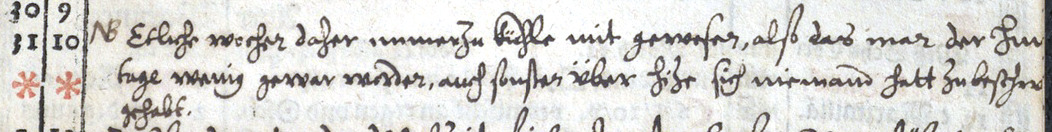 30 9
31 10 NB Etliche wochen daher immerzu kühle mit gewesen, also das man der hun
tage wenig gewar worden, auch sonsten über hize sich niemand hatt zu beschwe
gehabt.